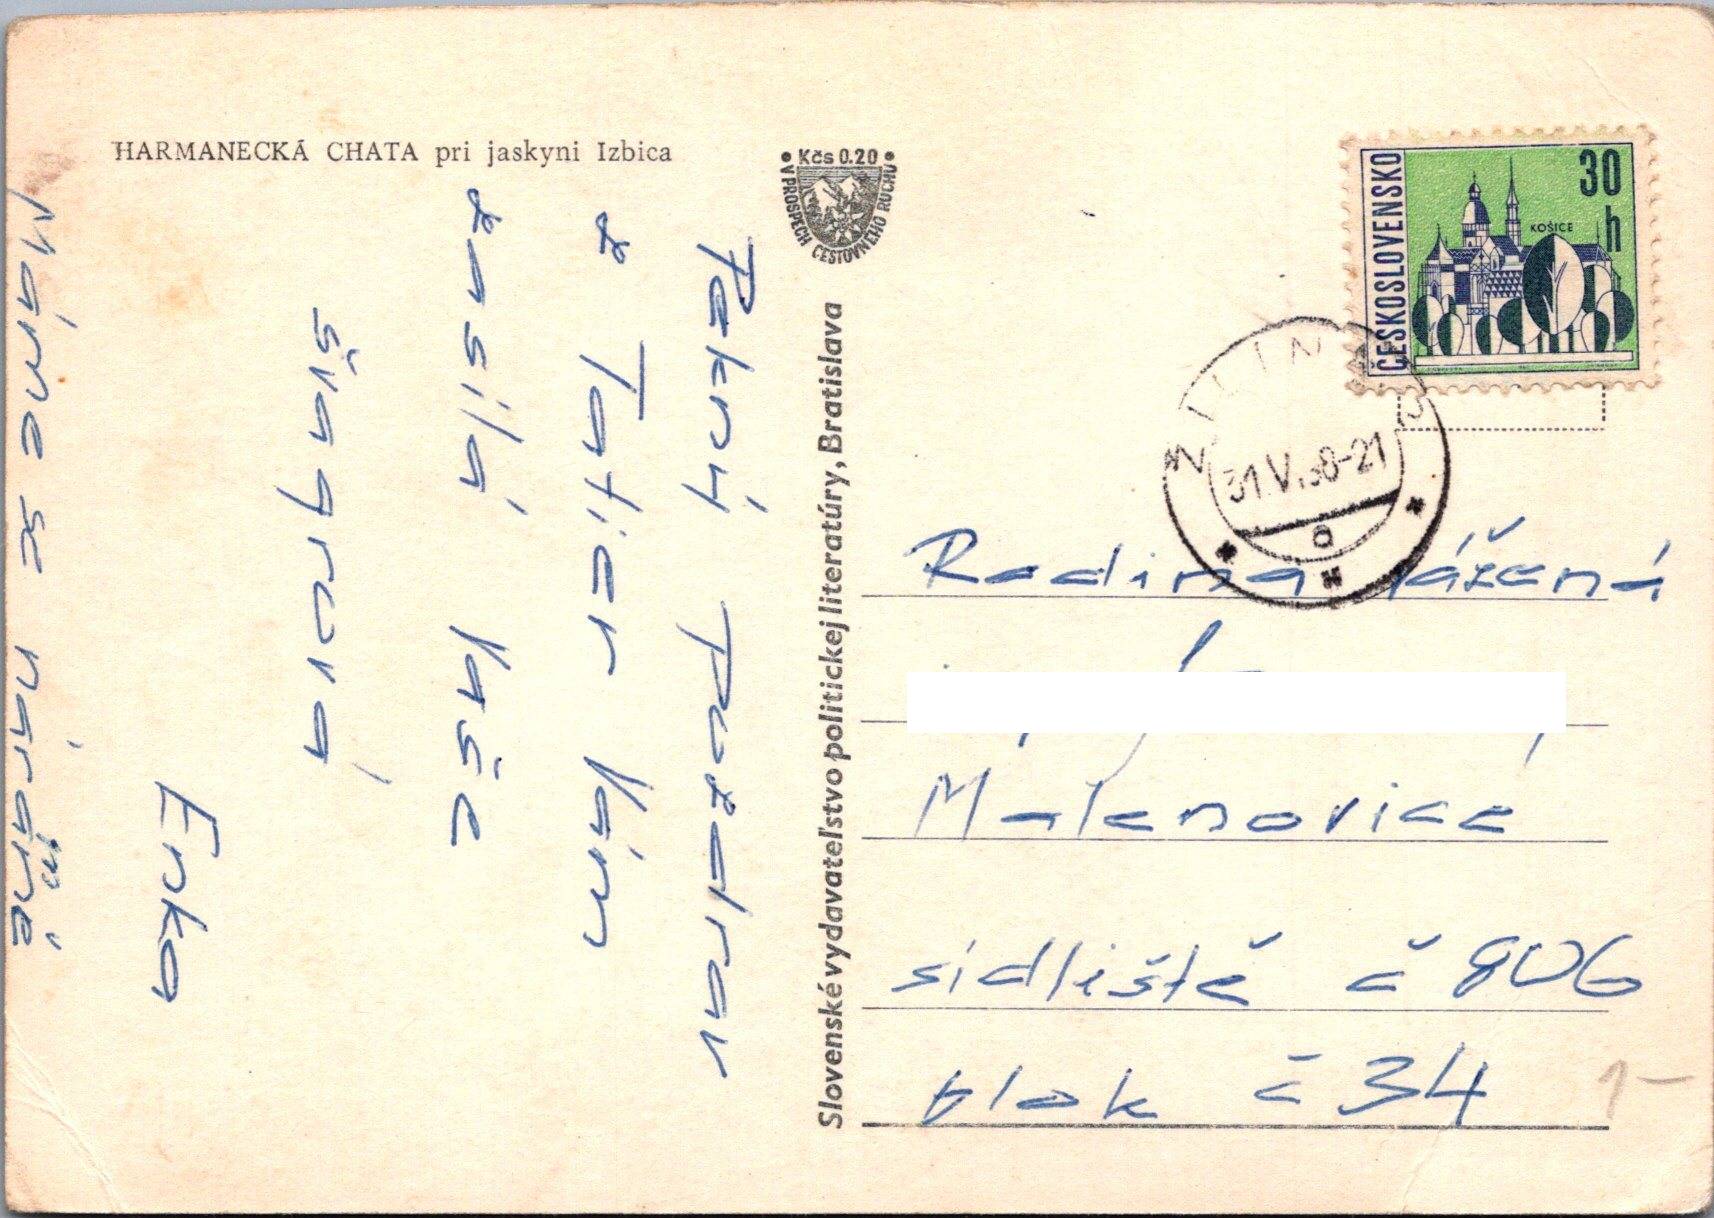 HARMANECKÁ CHATA pri jaskyni Izbica
Kčs 0.20
V PROSPECH CESTOVNÉHO RUCHU
Pekný pozdrav
z Tatier Vám
zasílá Vaše
švagrová
Enka
Máme se náramě
Slovenské vydavateľstvo politickej literatúry, Bratislava
ČESKOSLOVENSKO
30 h
KOŠICE
ŽILINA
31.V. 8-21
a
Rodina vážená
Malenovice
sídliště č 806
blok č 34
1-